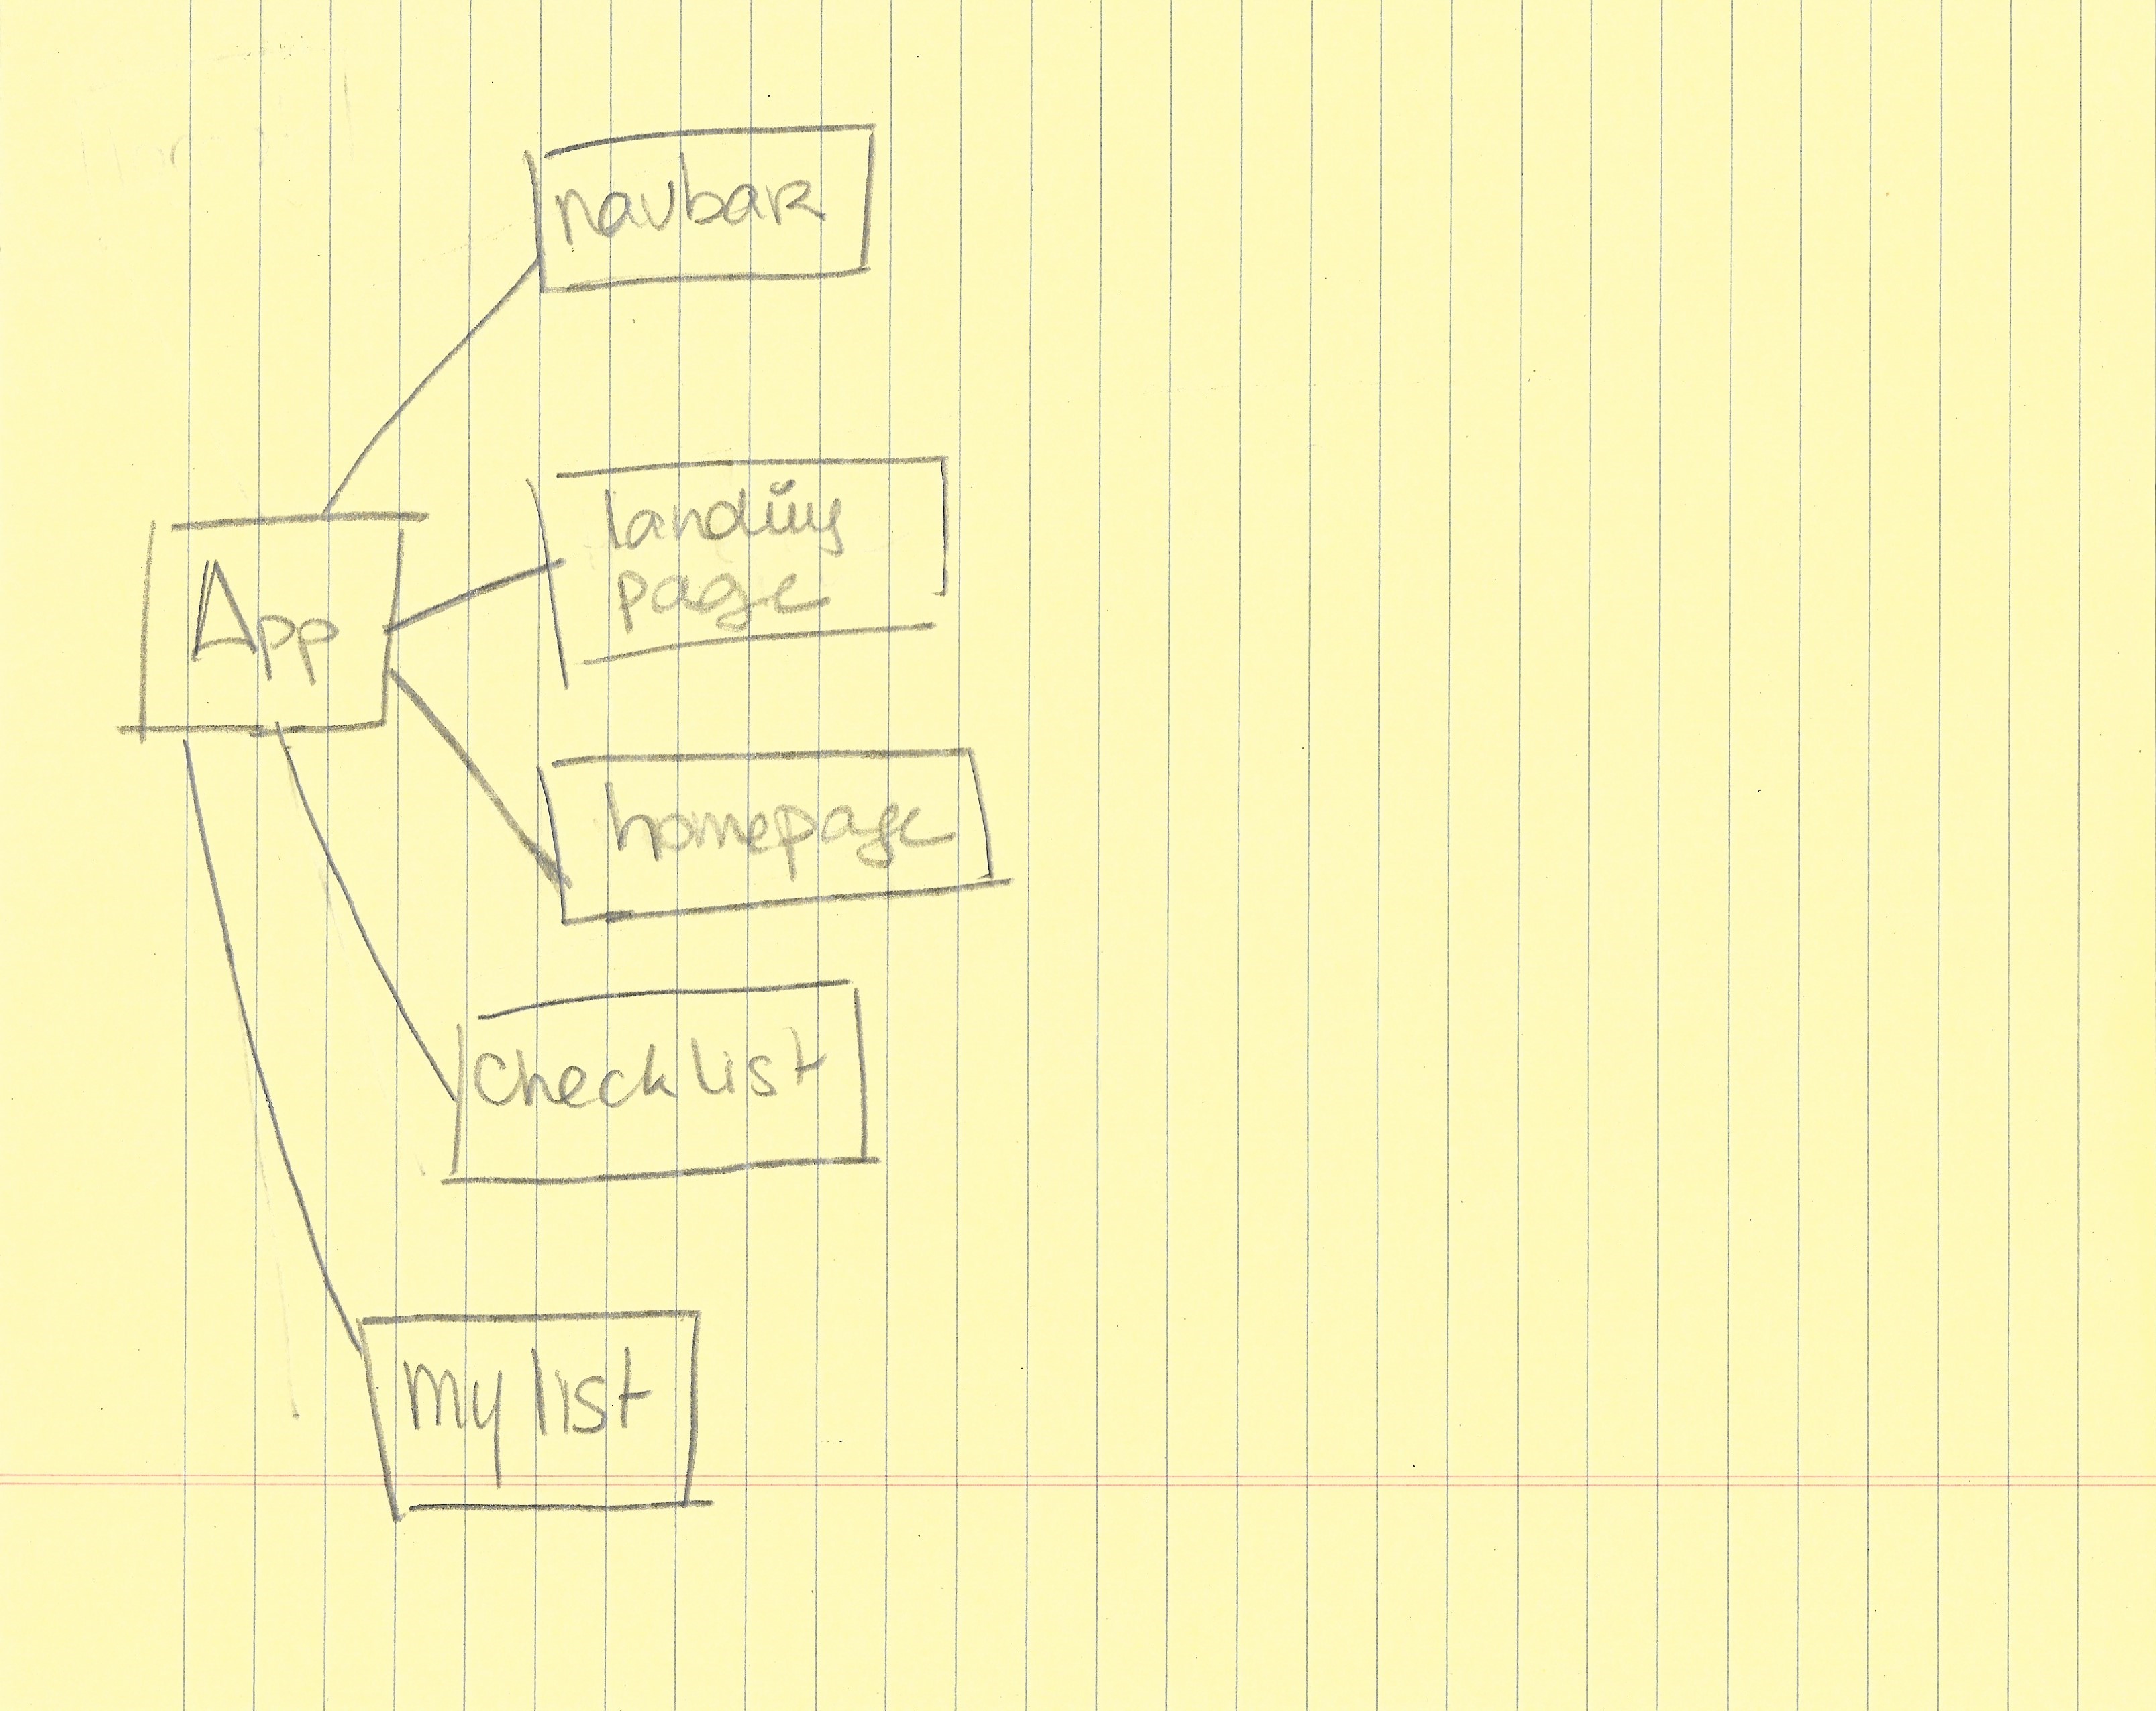 navbar
landing
page
App
homepage
checklist
my list